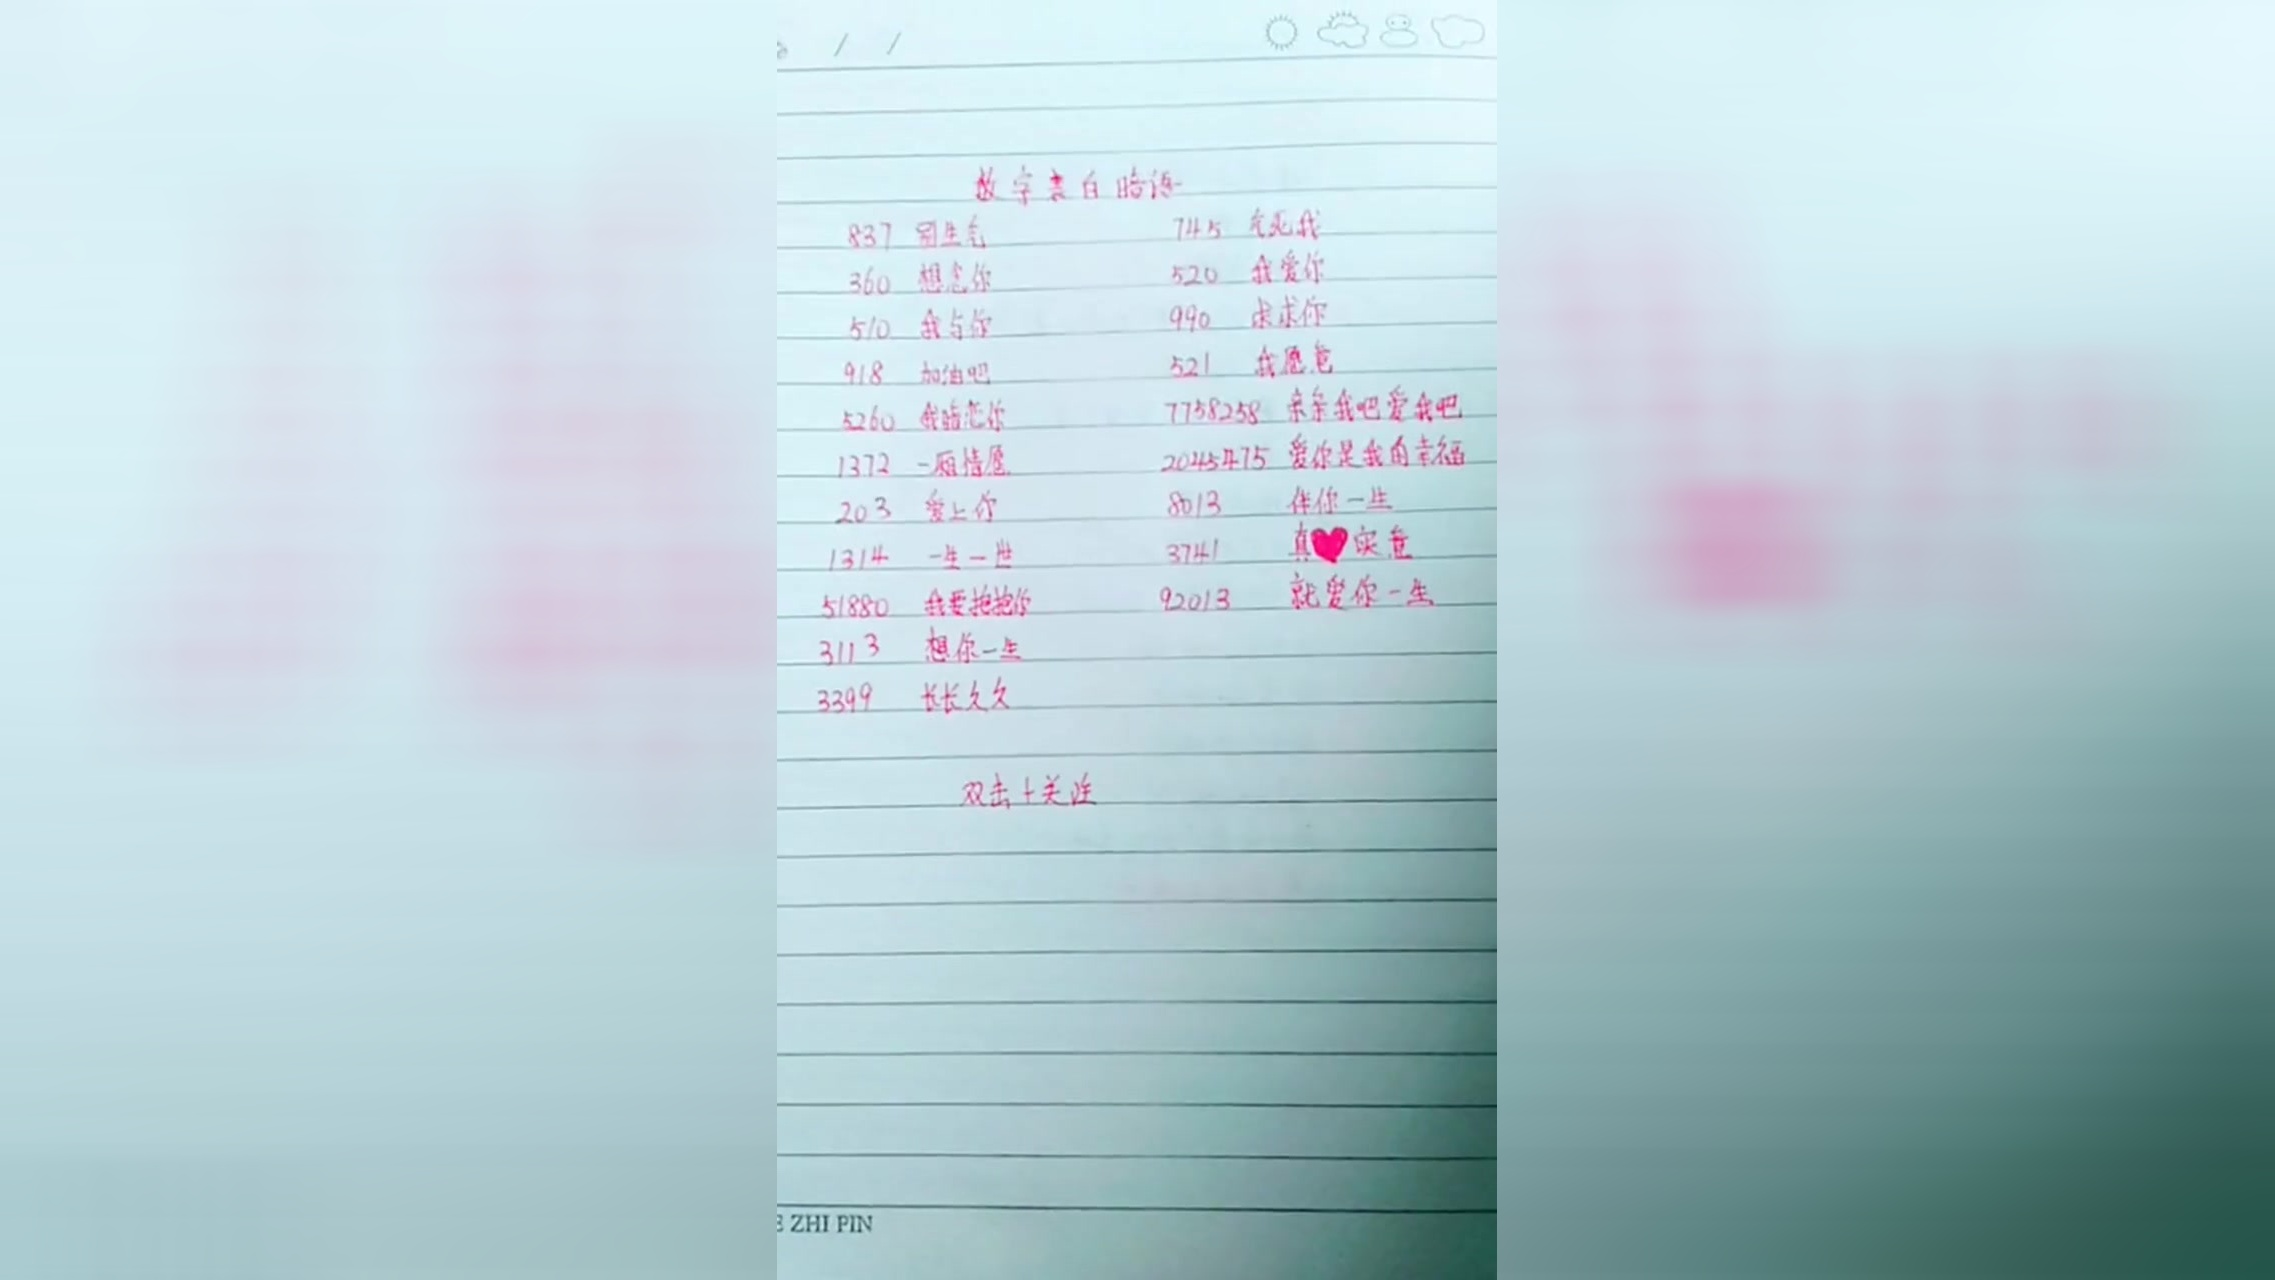 / /
数字表白暗语
837 别生气 745 气死我
360 想念你 520 我爱你
510 我与你 990 求求你
918 加油吧 521 我愿意
5260 我暗恋你 7758258 亲亲我吧爱我吧
1372 一厢情愿 2045475 爱你是我的幸福
203 爱上你 8013 伴你一生
1314 一生一世 3741 真❤实意
51880 我要抱抱你 92013 就爱你一生
3113 想你一生
3399 长长久久
双击+关注
ZHI PIN